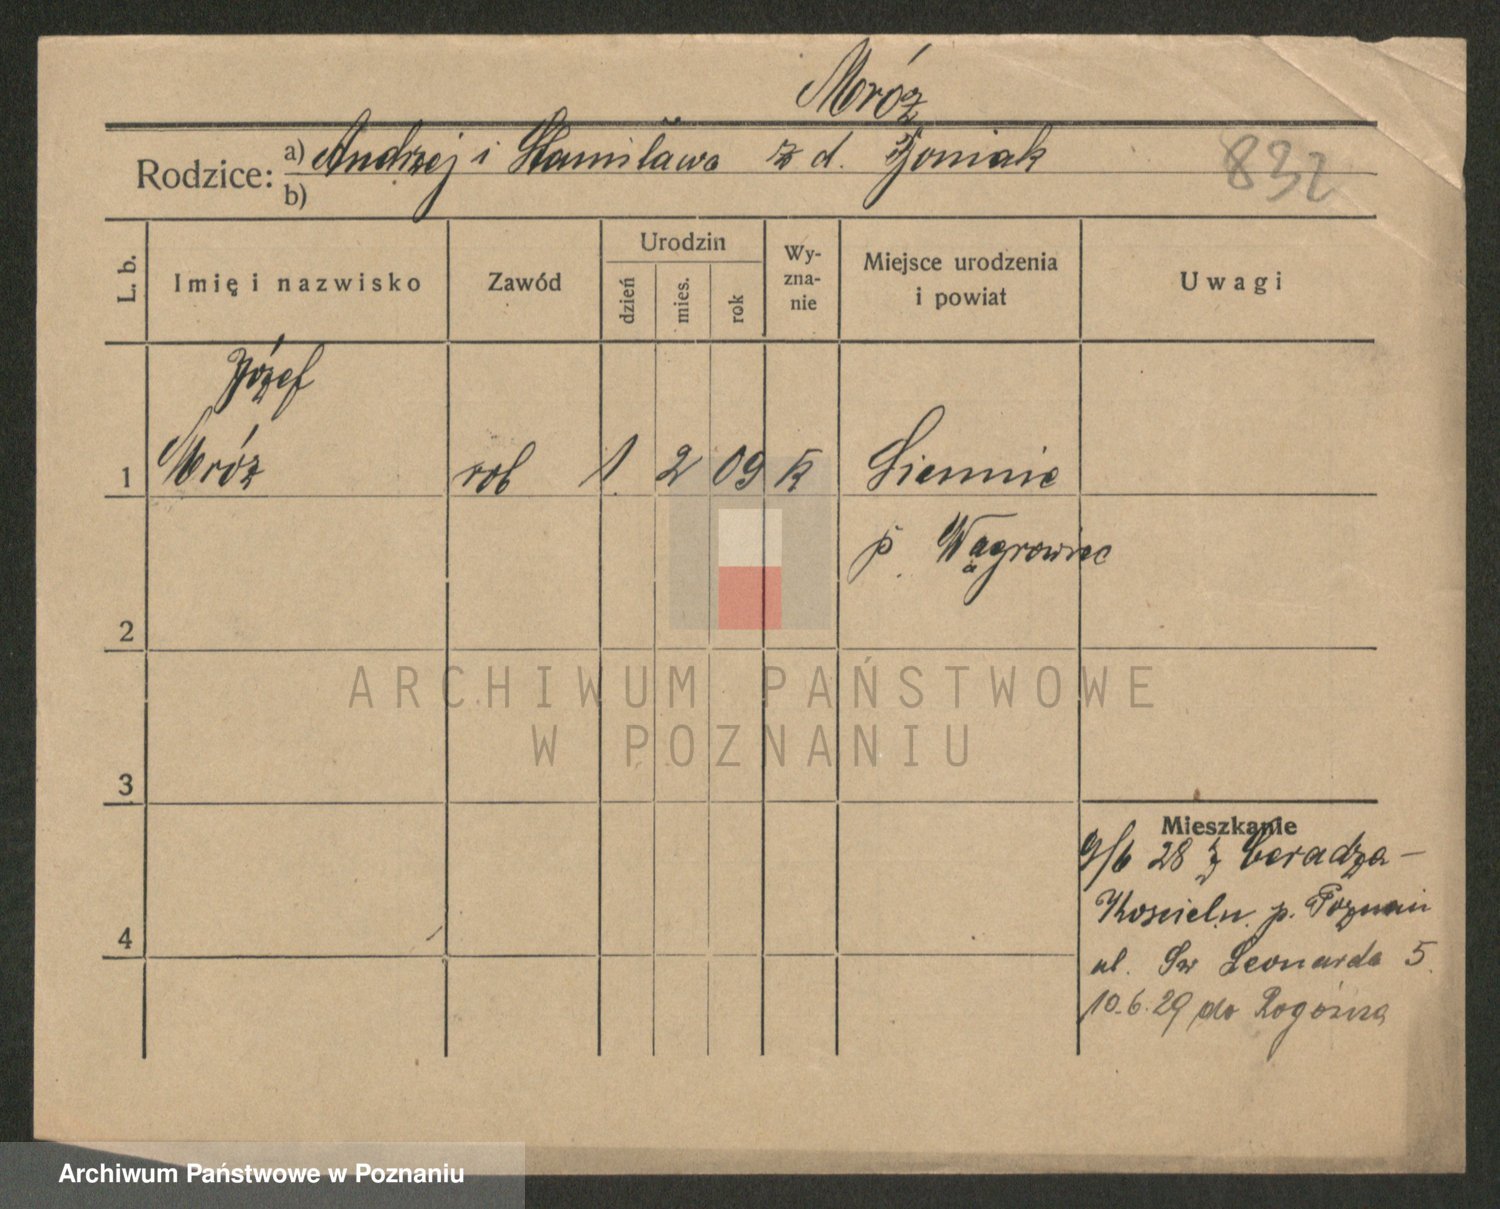 Mróz
Rodzice: a) Andrzej i Stanisława z d. Joniak
b)
832
L. b. Imię i nazwisko Zawód Urodzin dzień mies. rok Wy-zna-nie Miejsce urodzenia i powiat Uwagi
Józef
1 Mróz rob 1 2 09 K Siennie
p. Wągrowiec
2
3
4
Mieszkanie
9/6 28 z Ceradza-
Kościeln. p. Poznań
ul. Św Leonarda 5.
10.6.29 do Rogoźna
ARCHIWUM PAŃSTWOWE
W POZNANIU
Archiwum Państwowe w Poznaniu